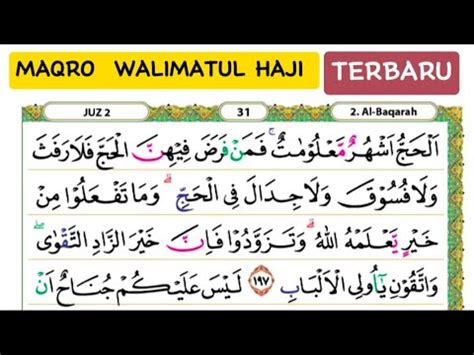 MAQRO WALIMATUL HAJI
TERBARU
JUZ 2
31
2. Al-Baqarah
اَلْحَجُّ اَشْهُرٌ مَّعْلُوْمٰتٌ ۚ فَمَنْ فَرَضَ فِيْهِنَّ الْحَجَّ فَلَا رَفَثَ
وَلَا فُسُوْقَ وَلَا جِدَالَ فِى الْحَجِّ ۗ وَمَا تَفْعَلُوْا مِنْ
خَيْرٍ يَّعْلَمْهُ اللّٰهُ ۗ وَتَزَوَّدُوْا فَاِنَّ خَيْرَ الزَّادِ التَّقْوٰى ۖ
وَاتَّقُوْنِ يٰٓاُولِى الْاَلْبَابِ ١٩٧ لَيْسَ عَلَيْكُمْ جُنَاحٌ اَنْ